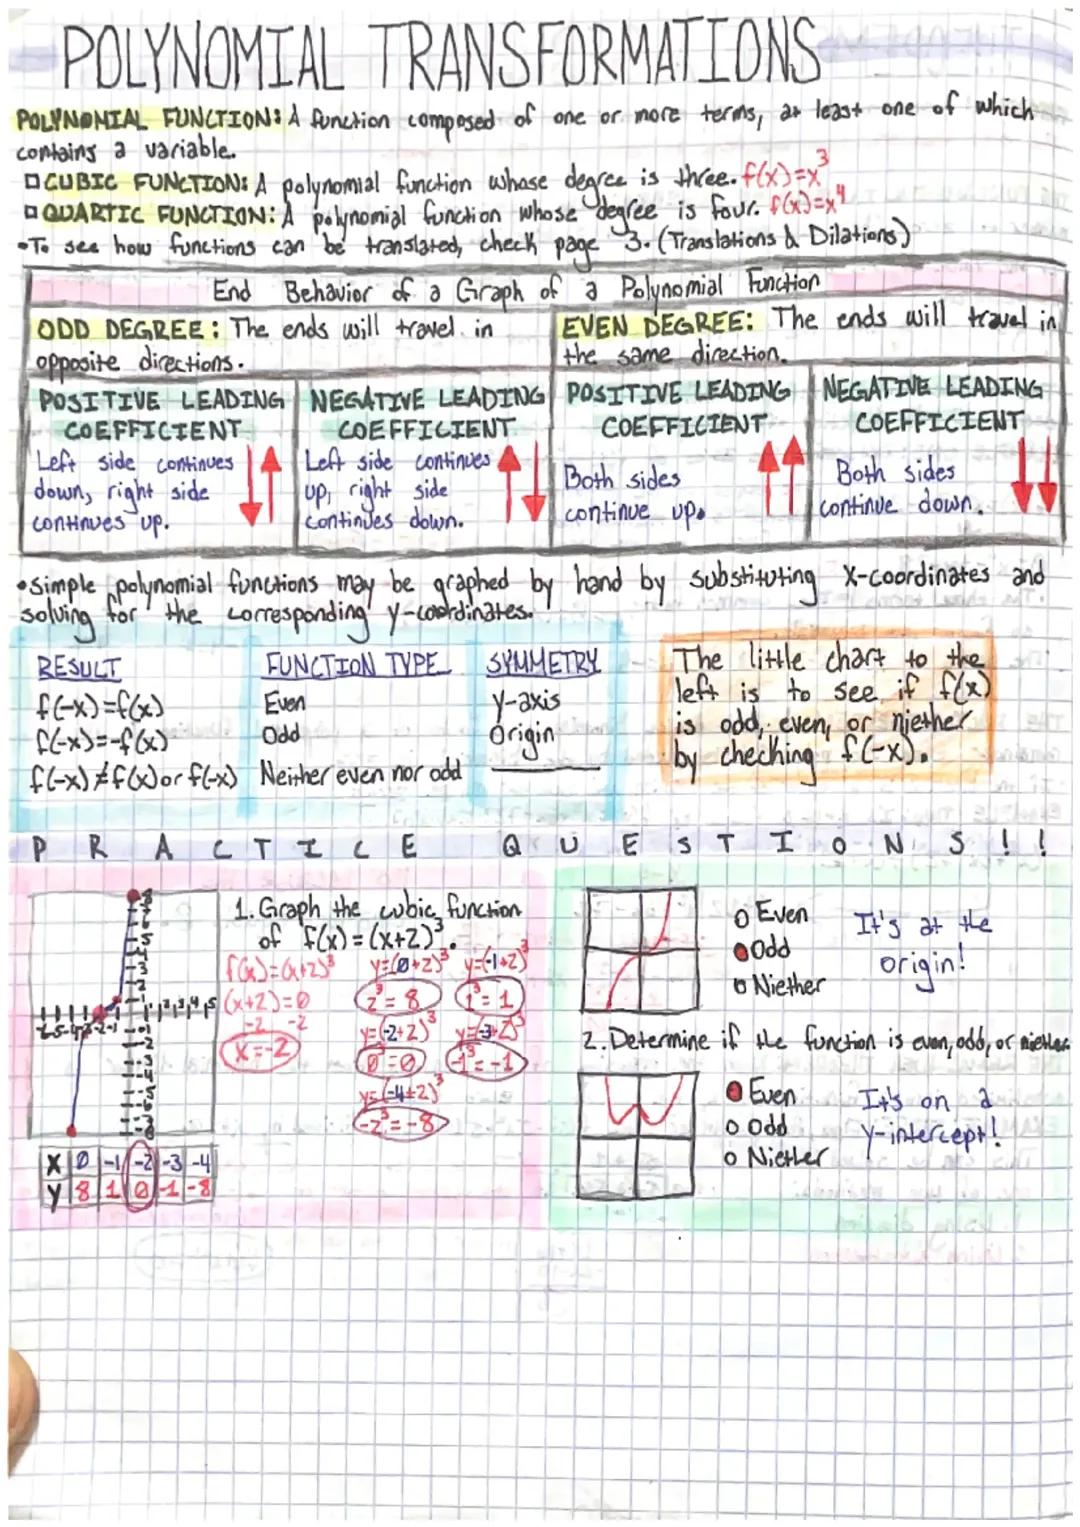 POLYNOMIAL TRANSFORMATIONS
POLYNOMIAL FUNCTION: A function composed of one or more terms, at least one of which
contains a variable.
□CUBIC FUNCTION: A polynomial function whose degree is three. f(x)=x³
□QUARTIC FUNCTION: A polynomial function whose degree is four. f(x)=x⁴
•To see how functions can be translated, check page 3. (Translations & Dilations)
End Behavior of a Graph of a Polynomial Function
ODD DEGREE: The ends will travel in
opposite directions.
EVEN DEGREE: The ends will travel in
the same direction.
POSITIVE LEADING
COEFFICIENT
Left side continues
down, right side
continues up.
NEGATIVE LEADING
COEFFICIENT
Left side continues
up, right side
continues down.
POSITIVE LEADING
COEFFICIENT
Both sides
continue up.
NEGATIVE LEADING
COEFFICIENT
Both sides
continue down.
•Simple polynomial functions may be graphed by hand by substituting X-coordinates and
solving for the corresponding y-coordinates.
RESULT FUNCTION TYPE SYMMETRY
f(-x)=f(x) Even y-axis
f(-x)=-f(x) Odd Origin
f(-x)≠f(x) or f(-x) Neither even nor odd
The little chart to the
left is to see if f(x)
is odd, even, or niether
by checking f(-x).
PRACTICE QUESTIONS!!
1. Graph the cubic function
of f(x)=(x+2)³.
f(x)=(x+2)³
(x+2)=0
-2 -2
x=-2
y=(0+2)³
2³=8
y=(-1+2)³
1³=1
y=(-2+2)³
0³=0
y=(-3+2)³
-1³=-1
y=(-4+2)³
-2³=-8
X 0 -1 -2 -3 -4
Y 8 1 0 -1 -8
Even
Odd
Niether
It's at the
origin!
2. Determine if the function is even, odd, or niether.
Even
Odd
Niether
It's on a
y-intercept!